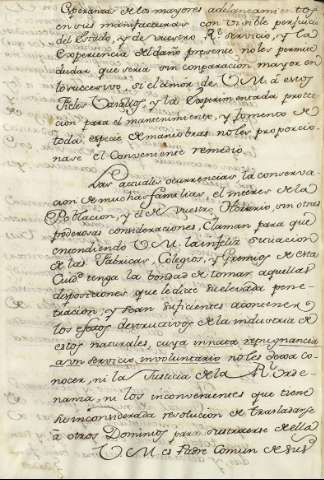 Esperanza de los mayores adelantamientos
en sus manufacturas con visible perjuicio
del Estado, y de vuestro Rl. servicio, y la
Experiencia del daño presente no les permite
dudar que sería sin comparacion mayor en
lo succesivo, si el amor de V.M. á estos
Fieles Vasallos, y la Experimentada protec-
cion para el mantenimiento, y fomento de
toda especie de maniobras no les proporcio-
nase el Conveniente remedio.
Las actuales ocurrencias, la conserva-
cion de muchas familias, el interes de la
Poblacion, y el de vuestro Herario, con otras
poderosas consideraciones, Claman para que
entendiendo V.M. la infeliz situacion
de las Fabricas, Colegios, y Gremios de esta
Ciud. tenga la bondad de tomar aquellas
disposiciones que le dicte su elevada pene-
tracion, y sean suficientes a contener
los efectos destructivos de la industria de
estos naturales, cuya innata repugnancia
a un servicio involuntario no les dexa co-
nocer, ni la Justicia de la Rl. Orde-
nanza, ni los inconvenientes que tiene
su inconsiderada resolucion de trasladarse
á otros Dominios para substraerse de ella
V.M. es Padre Comun de sus